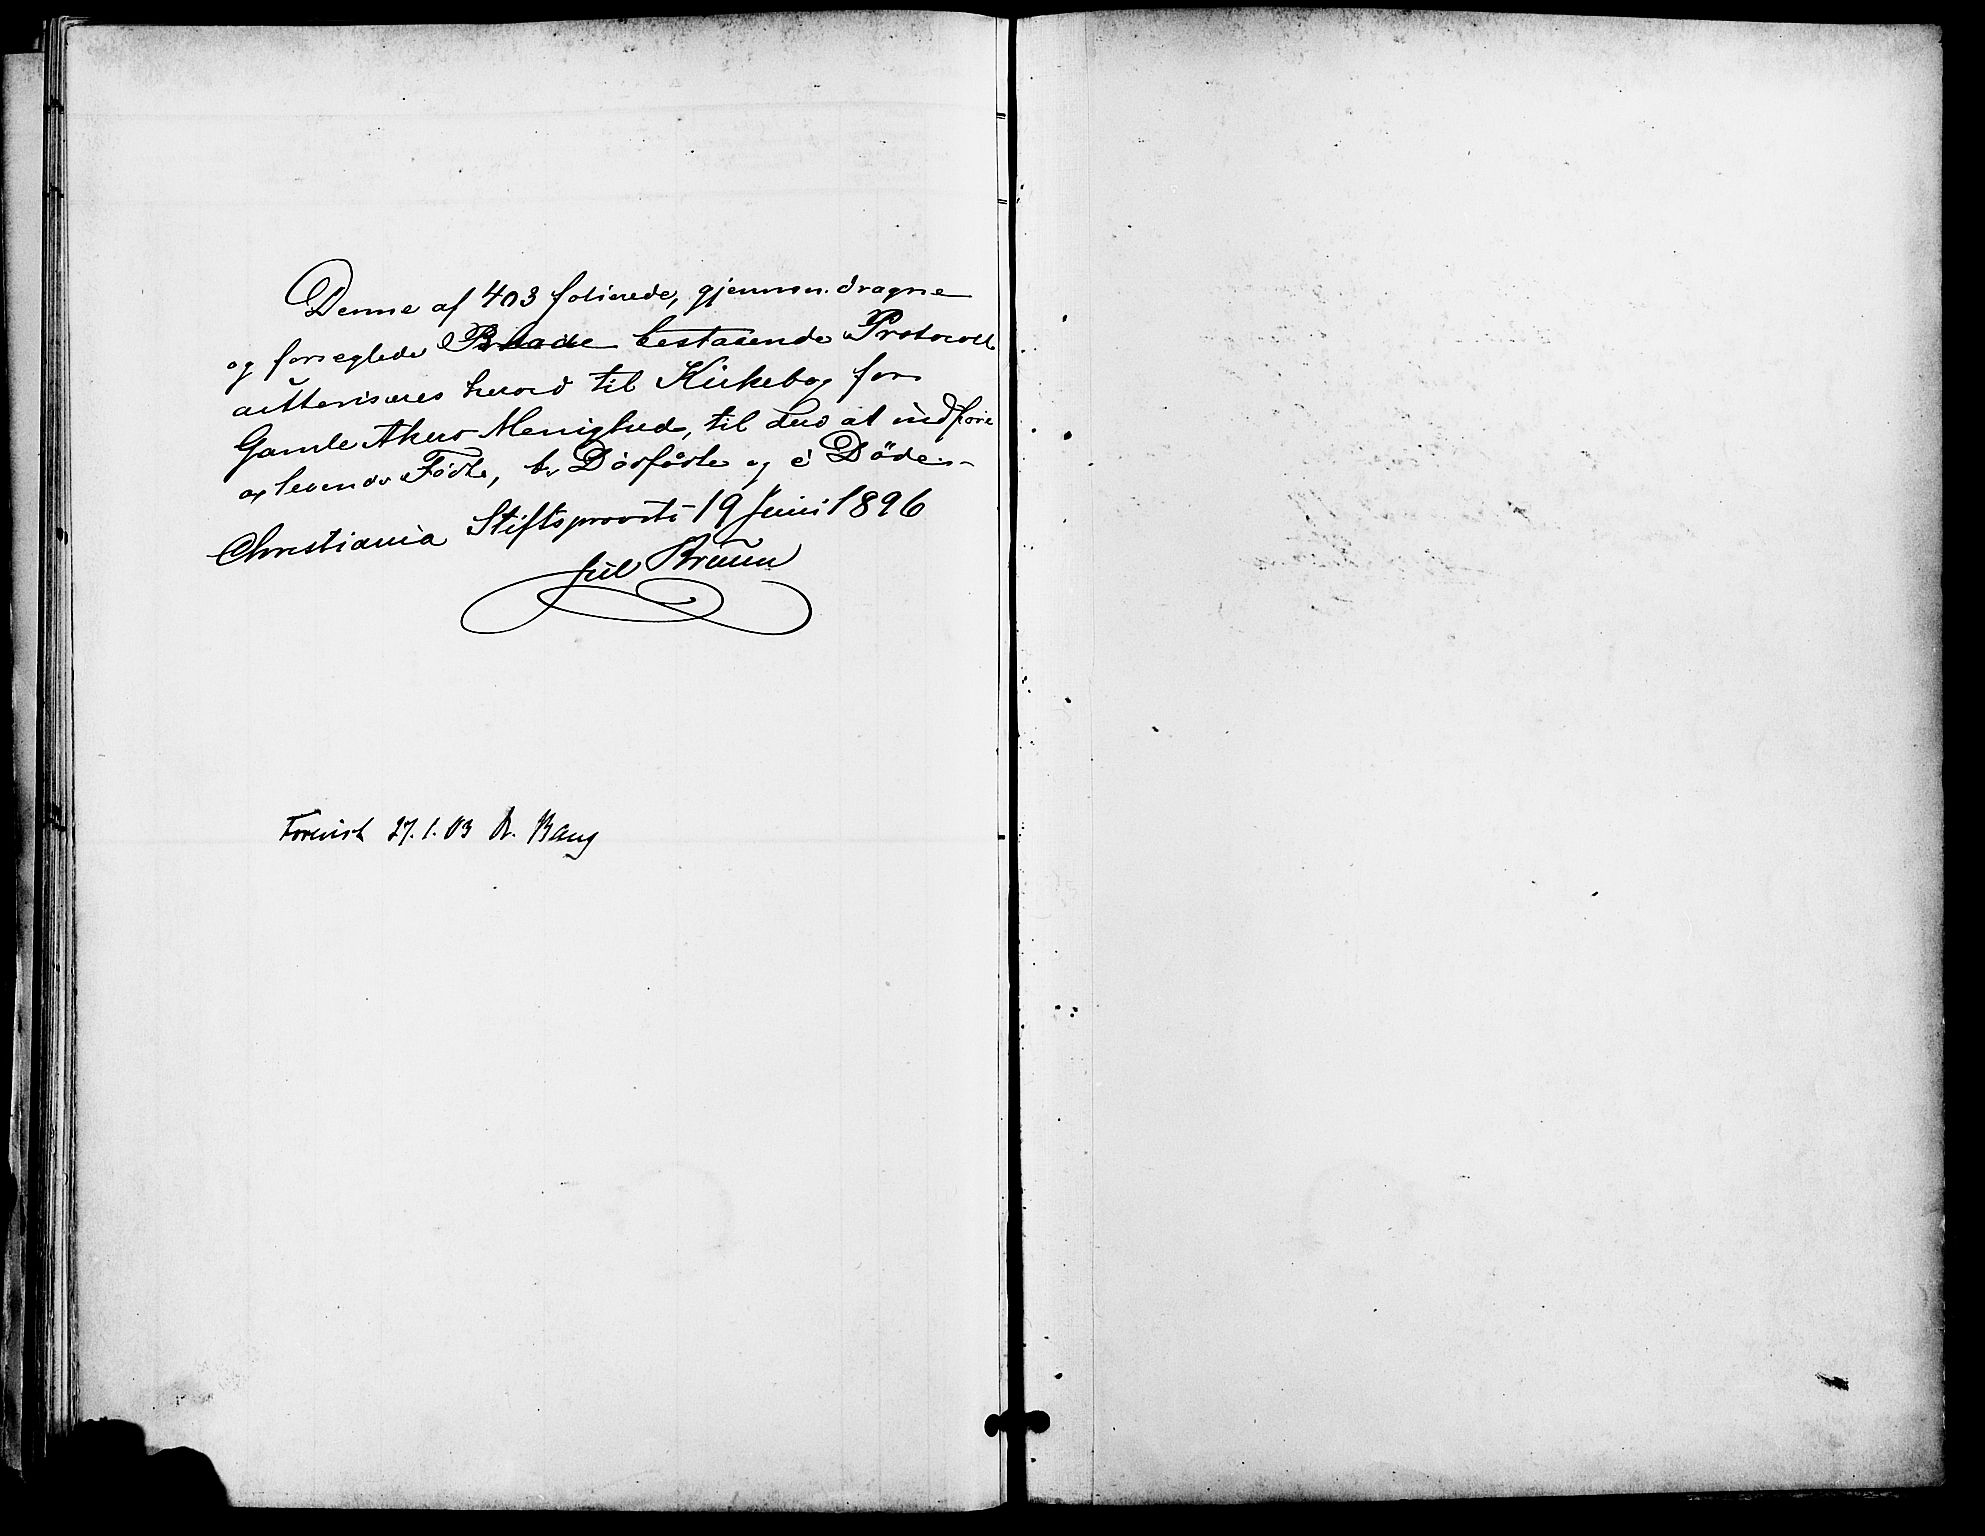 Denne af 403 folierede, gjennemdragne
og forseglede Blade bestaaende Protocoll
autteriseres herved til Kirkebog for
Gamle Akers Menighed, til deri at indføre
a, levende Fødte, b, Dødfødte og c Døde.-
Christiania Stiftsprovsti 19 Juni 1896
Jul Bruun
Forevist 27.1.03 A. Bang